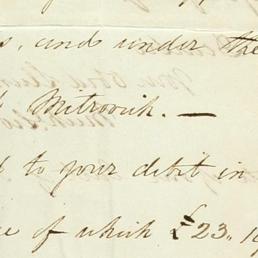 s, and under the
Mitrovich. —
d to your debit in
e of which £23,, 19